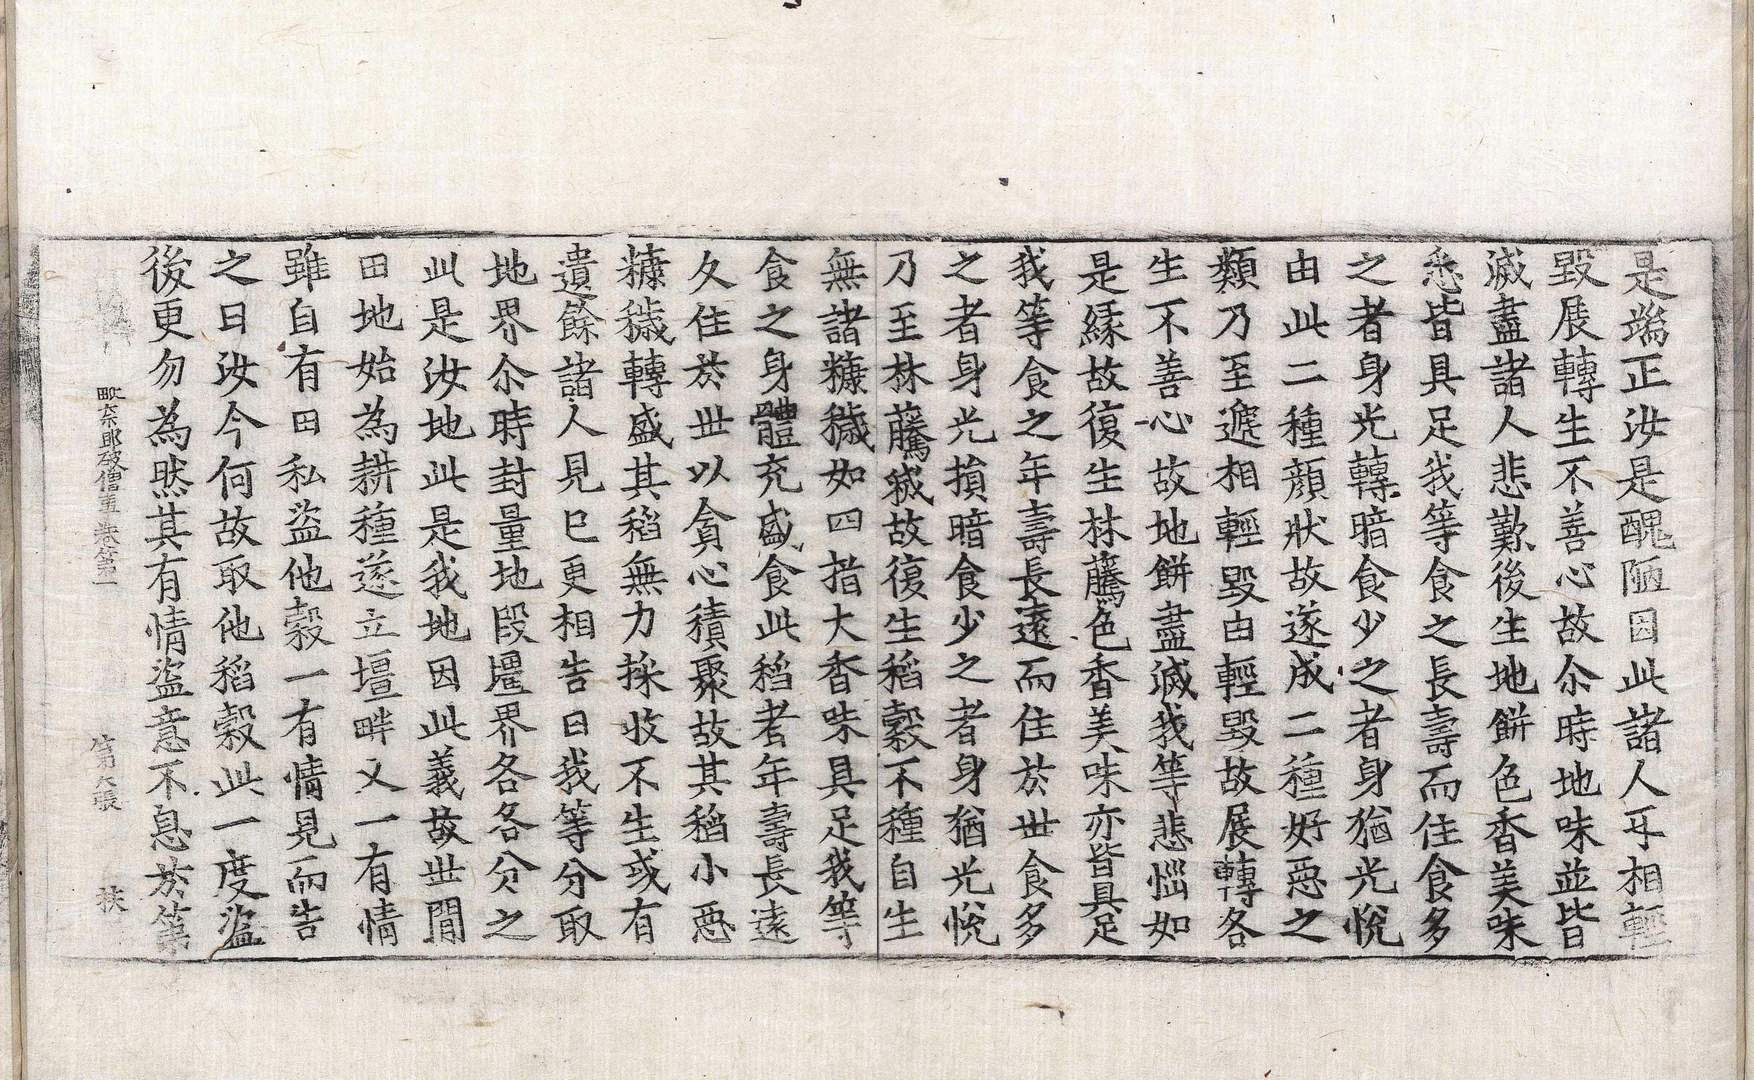 是端正汝是醜陋因此諸人互相輕
毀展轉生不善心故尒時地味並皆
滅盡諸人悲歎後生地餅色香美味
悉皆具足我等食之長壽而住食多
之者身光轉暗食少之者身猶光悅
由此二種顔狀故遂成二種好惡之
類乃至遞相輕毀由輕毀故展轉各
生不善心故地餅盡滅我等悲惱如
是緣故復生林藤色香美味亦皆具足
我等食之年壽長遠而住於世食多
之者身光損暗食少之者身猶光悅
乃至林藤滅故復生稻穀不種自生
無諸糠穢如四指大香味具足我等
食之身體充盛食此稻者年壽長遠
久住於世以貪心積聚故其稻小惡
糠穢轉盛其稻無力採收不生或有
遺餘諸人見已更相告曰我等分取
地界尒時封量地段壃界各各分之
此是汝地此是我地因此義故世間
田地始為耕種遂立壃畔又一有情
雖自有田私盜他穀一有情見而告
之曰汝今何故取他稻穀此一度盜
後更勿為然其有情盜意不息於第
毗奈耶破僧事卷第一 第六張 扶